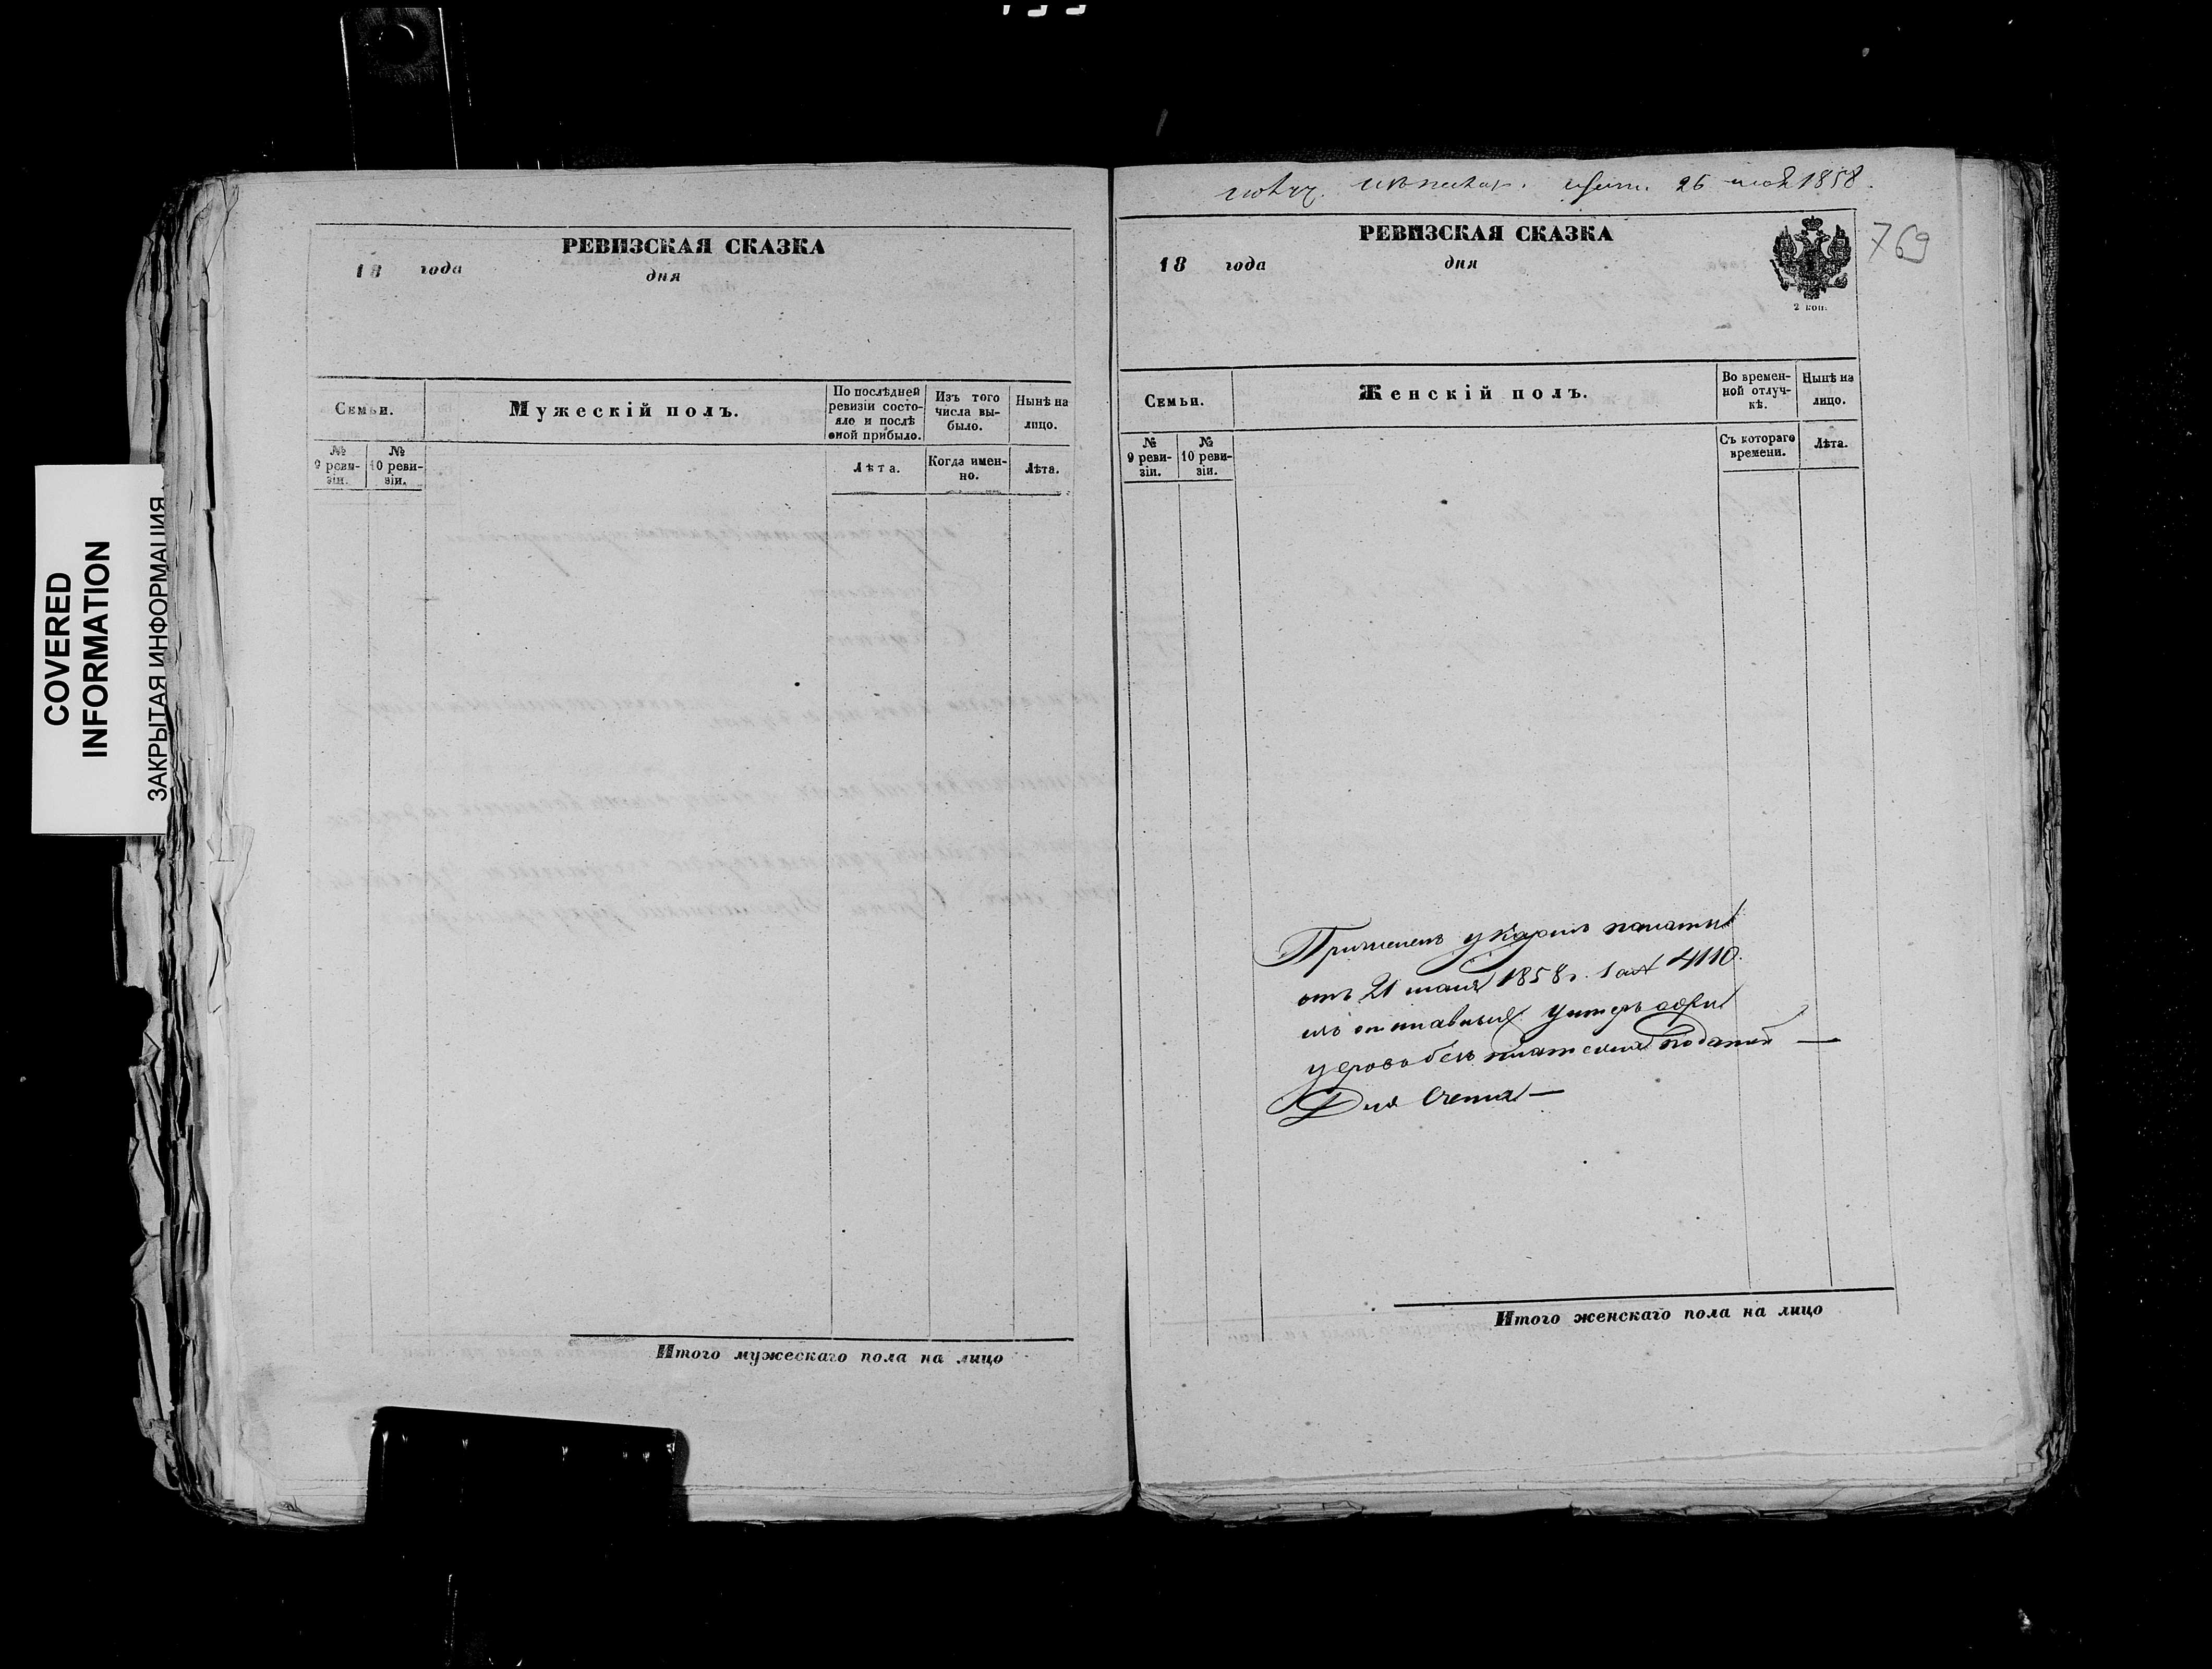 COVERED
INFORMATION
ЗАКРЫТАЯ ИНФОРМАЦИЯ
РЕВИЗСКАЯ СКАЗКА
18 года дня
Семьи.
Мужескій полъ.
По послѣдней
ревизіи состо-
яло и послѣ
оной прибыло.
Изъ того
числа вы-
было.
Нынѣ на
лицо.
№
9 реви-
зіи.
№
10 реви-
зіи.
Лѣта.
Когда имен-
но.
Лѣта.
Итого мужескаго пола на лицо
26 1858.
769
РЕВИЗСКАЯ СКАЗКА
18 года дня
2 коп.
Семьи.
Женскій полъ.
Во времен-
ной отлуч-
кѣ.
Нынѣ на
лицо.
№
9 реви-
зіи.
№
10 реви-
зіи.
Съ котораго
времени.
Лѣта.
Причисленъ указомъ палаты
отъ 21 1858 г. 4110.
изъ отставныхъ Унтеръ офи
безъ платежа податей —
Для счета —
Итого женскаго пола на лицо